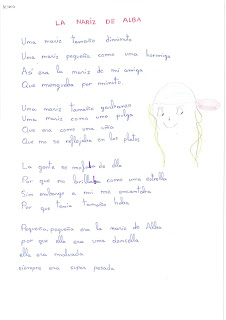 LA NARIZ DE ALBA
Una nariz tamaño diminuto
Una nariz pequeña como una hormiga
Así era la nariz de mi amiga
Que menguaba por minuto.
Una nariz tamaño
Una nariz como una pulga
Que era como una uña
Que no se reflejaba en los platos
La gente se mofaba de ella
Por que no brillaba como una estrella
Sin embargo a mi me encantaba
Por que tenía tamaño haba
Pequeña, pequeña era la nariz de Alba
por que ella era una doncella
ella era malvada
siempre era super pesada